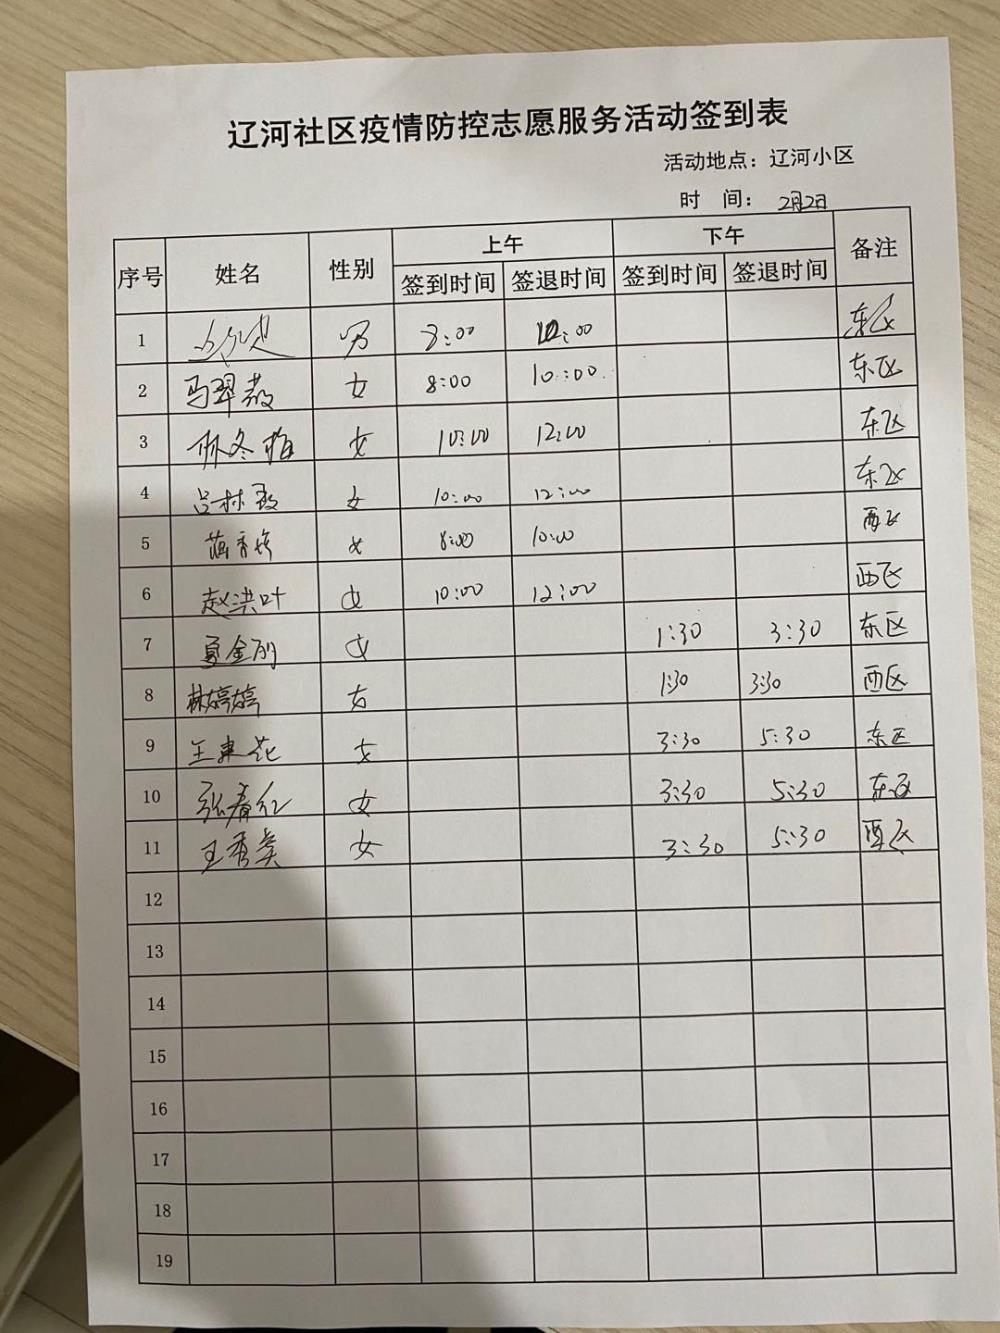 辽河社区疫情防控志愿服务活动签到表
活动地点：辽河小区
时 间： 2月2日
序号 姓名 性别 上午 下午 备注
签到时间 签退时间 签到时间 签退时间
1 男 8:00 :00 东区
2 马翠 女 8:00 10:00 东区
3 林冬梅 女 10:00 12:00 东区
4 吕林 女 10:00 12:00 东区
5 女 8:00 10:00 西区
6 赵洪叶 女 10:00 12:00 西区
7 金 女 1:30 3:30 东区
8 林婷婷 女 1:30 3:30 西区
9 王 花 女 3:30 5:30 东区
10 张春红 女 3:30 5:30 东区
11 王秀 女 3:30 5:30 西区
12
13
14
15
16
17
18
19